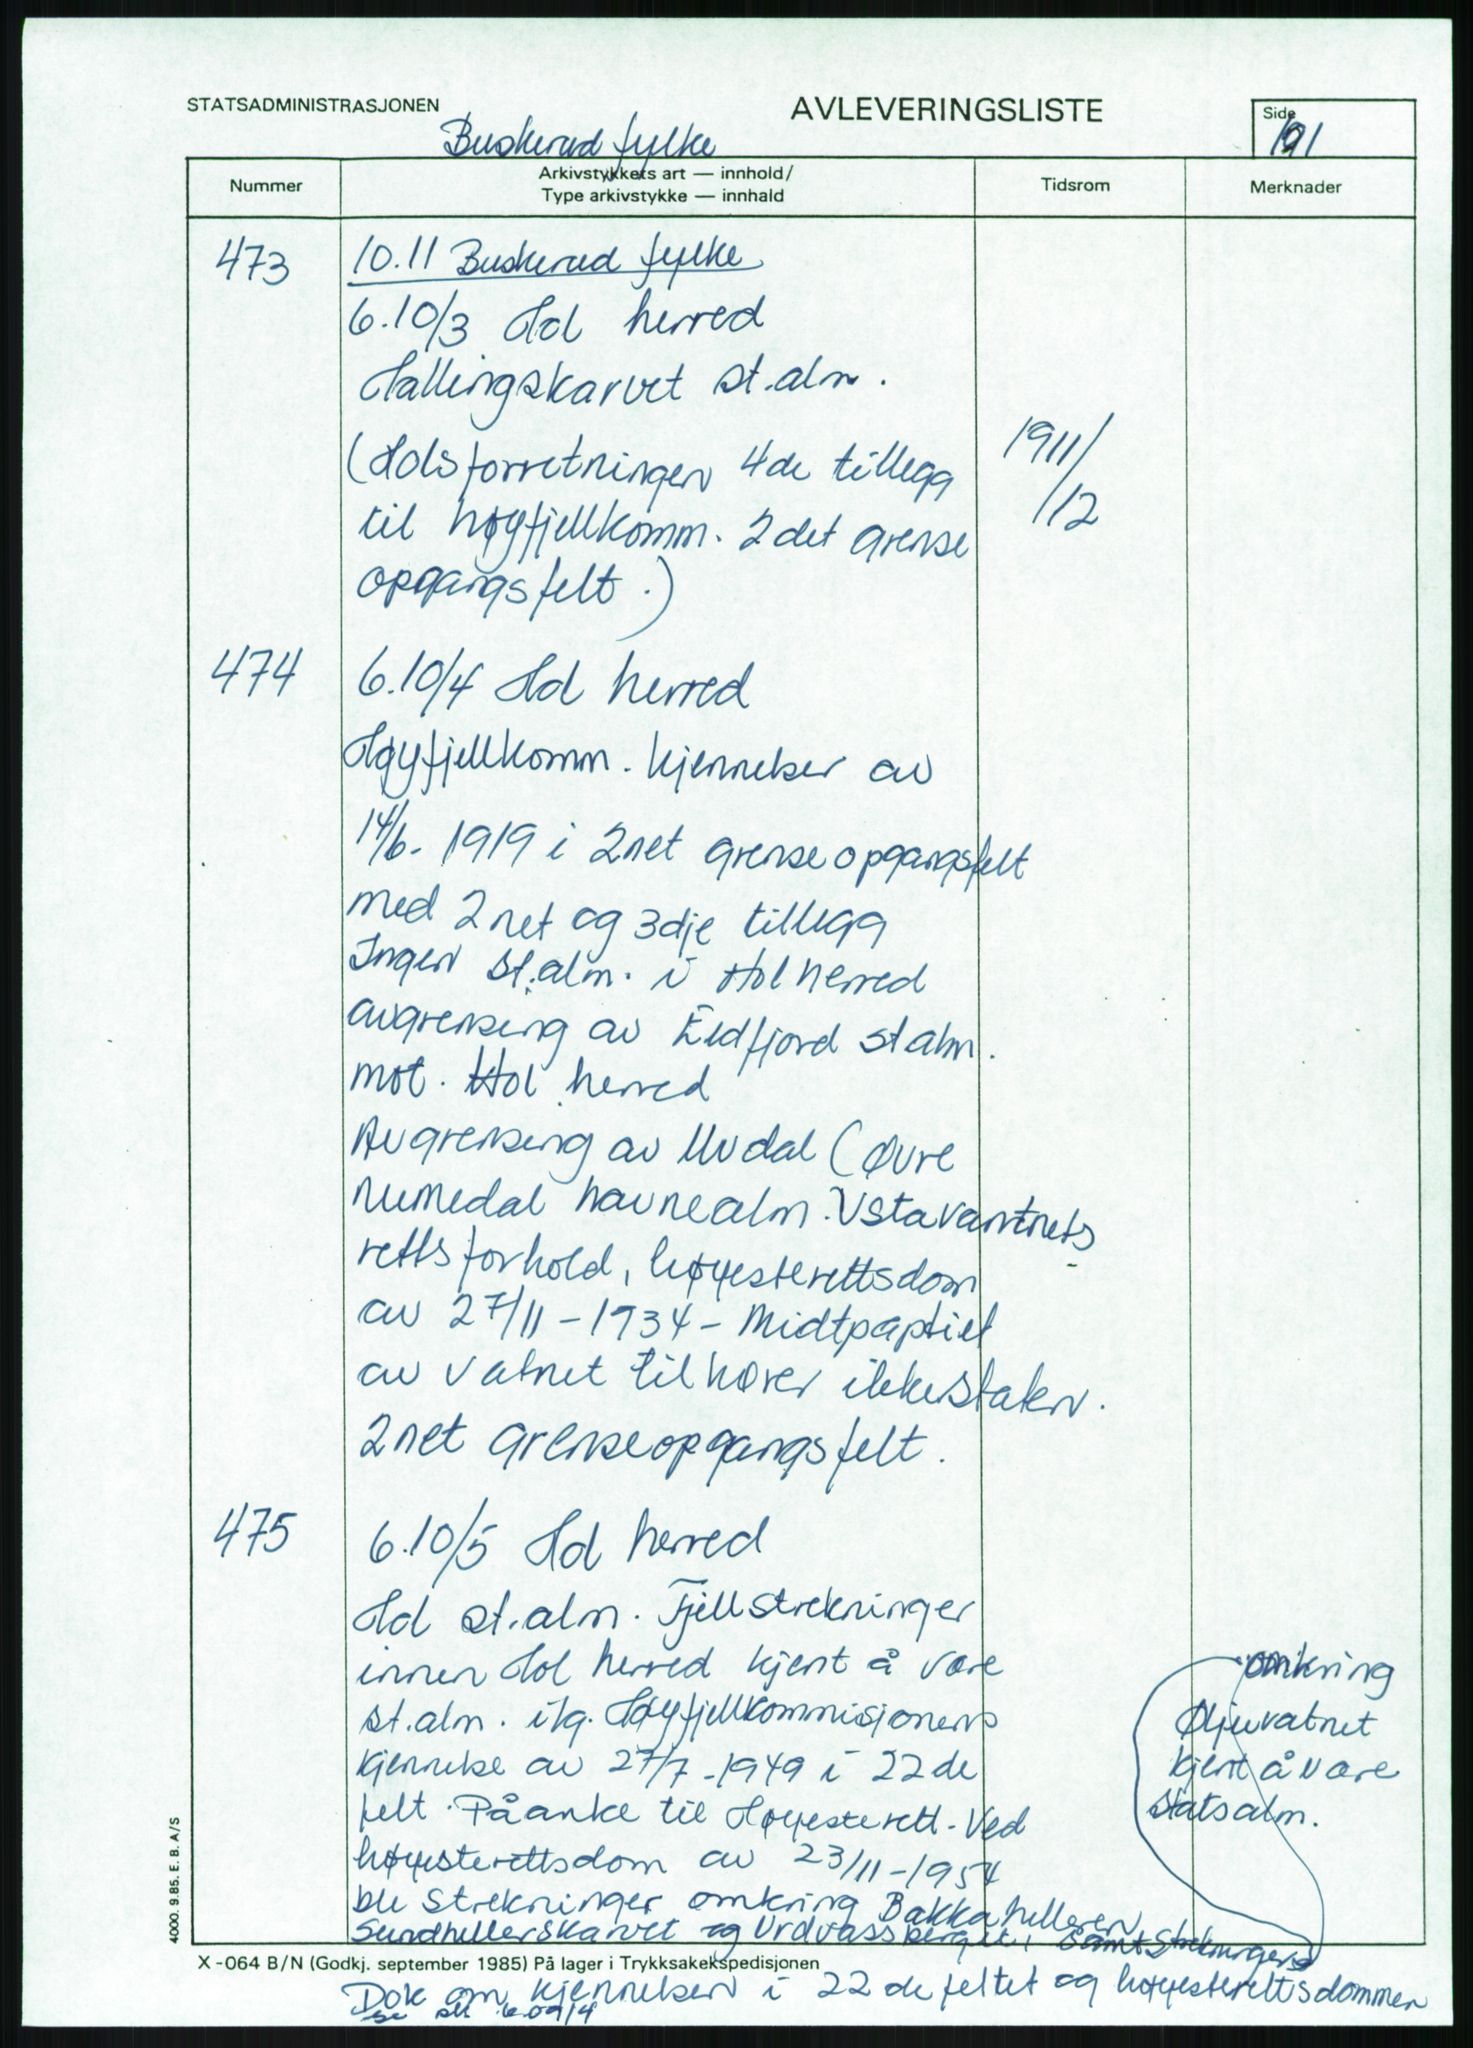 STATSADMINISTRASJONEN
AVLEVERINGSLISTE
Side
191
Buskerud fylke
Nummer
Arkivstykkets art — innhold/
Type arkivstykke — innhald
Tidsrom
Merknader
473
10.11 Buskerud fylke
6.10/3 Hol herred
Hallingskarvet st.alm.
(Holsforretningen 4de tillegg
1911/
til høyfjellkomm. 2det grense
/12
opgangsfelt.)
474
6.10/4 Hol herred
Høyfjellkomm. kjennelser av
14/6-1919 i 2net grenseopgangsfelt
med 2net og 3dje tillegg
Ingen st.alm. i Hol herred
avgrensing av Eidfjord st alm.
mot. Hol herred
Avgrensing av Uvdal (Øvre
Numedal havnealm. Ustavantnets
rettsforhold, høyesterettsdom
av 27/11-1934 - Midtpartiet
av vatnet tilhører ikke staten.
2net grenseopgangsfelt.
475
6.10/5 Hol herred
Hol st.alm. Fjellstrekninger
innen Hol herred kjent å være
st.alm. ifg. Høyfjellkommisjonens
kjennelse av 27/7-1949 i 22de
felt. Påanke til Høyesterett. Ved
høyesterettsdom av 23/11-1954
ble strekninger omkring Bakkahelleren
Sundhellerskarvet og Urdvassberget, samt strekningene
omkring
Øljuvatnet
kjent å være
Statsalm.
4000. 9.85. E. B. A/S
X-064 B/N (Godkj. september 1985) På lager i Trykksakekspedisjonen
Dok om kjennelsen i 22de feltet og høyesterettsdommen
se 6.09/4